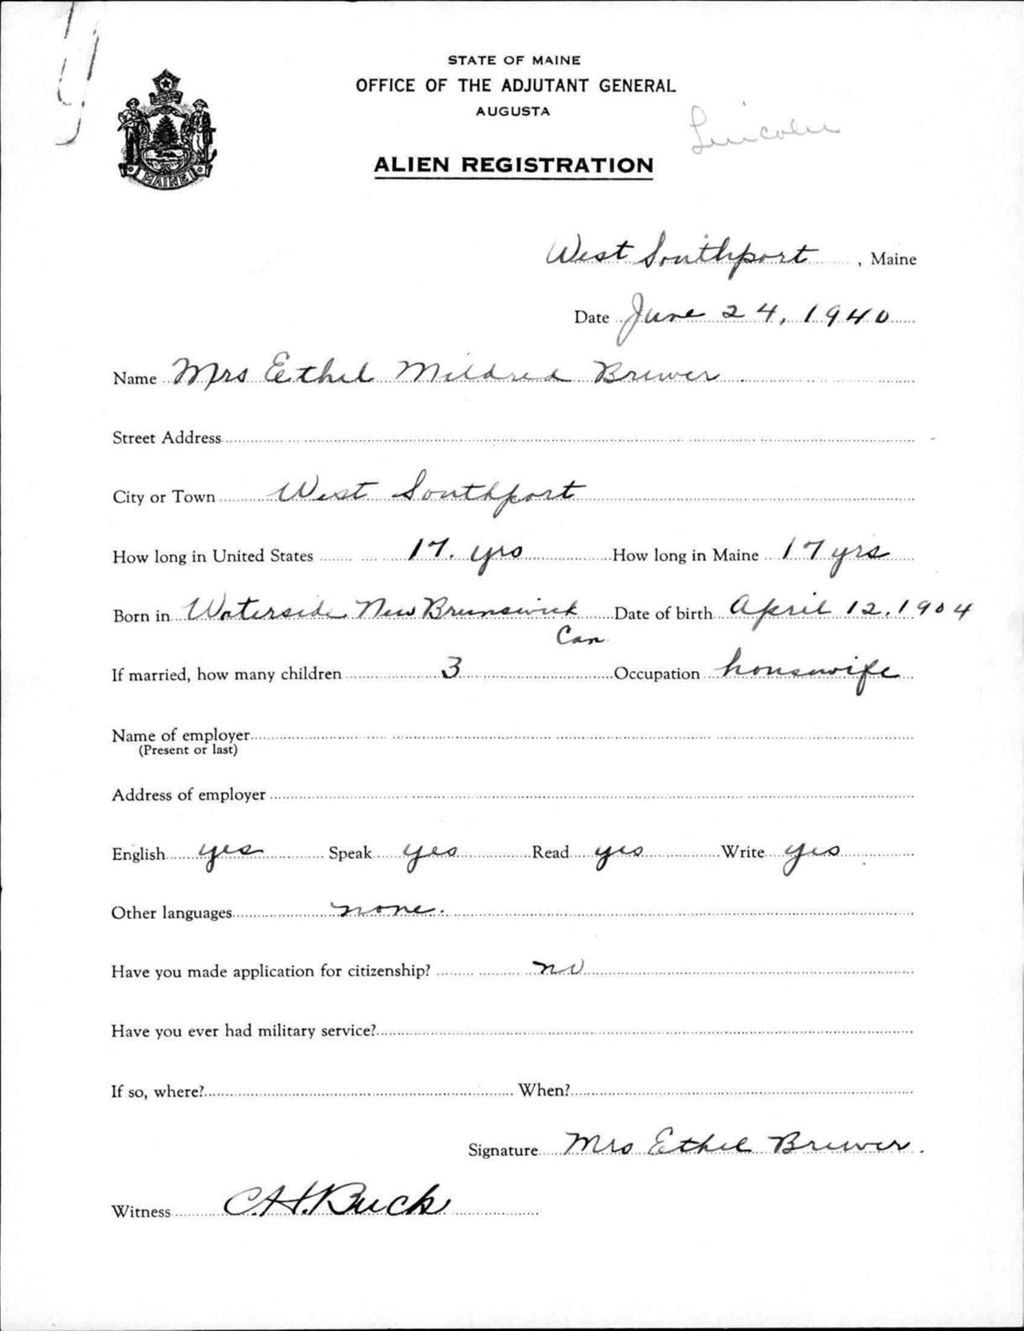 STATE OF MAINE
OFFICE OF THE ADJUTANT GENERAL
AUGUSTA
Lincoln
ALIEN REGISTRATION
MAINE
West Southport, Maine
Date June 24, 1940
Name Mrs Ethel Mildred Brewer.
Street Address
City or Town West Southport
How long in United States 17. yrs How long in Maine 17 yrs
Born in Waterside New Brunswick Date of birth April 12, 1904
Can
If married, how many children 3 Occupation housewife
Name of employer
(Present or last)
Address of employer
English yes Speak yes Read yes Write yes
Other languages none.
Have you made application for citizenship? no
Have you ever had military service?
If so, where? When?
Signature Mrs Ethel Brewer.
Witness C.H. Buck